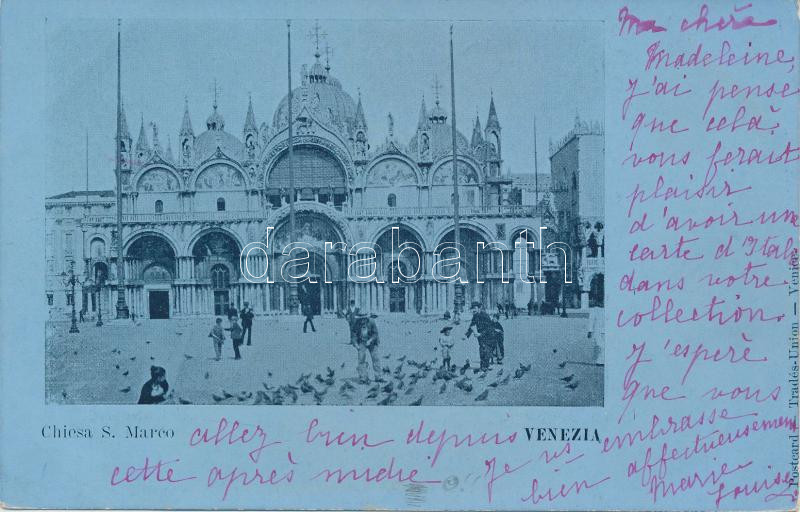 Ma chère
Madeleine,
j'ai pensé
que celà
vous ferait
plaisir
d'avoir une
carte d'Italie
dans votre
collection.
J'espère
que vous
allez bien depuis
cette après midie. Je vs embrasse
bien affectueusement
Marie
Louise
Chiesa S. Marco
VENEZIA
Postcard Tradés-Union — Venice
darabanth